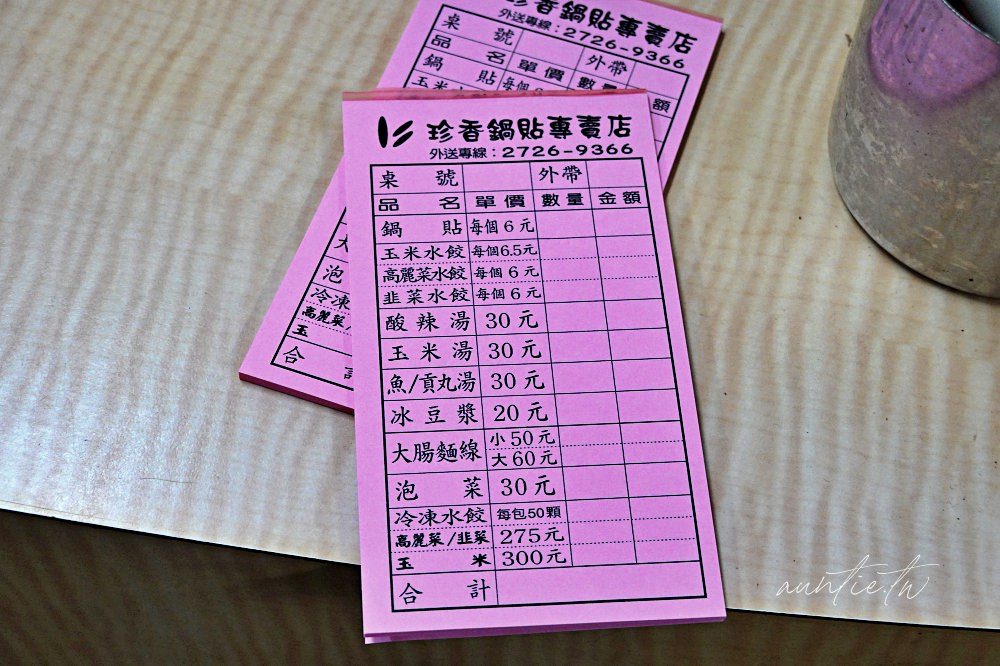 珍香鍋貼專賣店
外送專線：2726-9366
桌號 外帶
品名 單價 數量
鍋貼 每個6
玉米水
額
珍香鍋貼專賣店
外送專線：2726-9366
桌號 外帶
品名 單價 數量 金額
鍋貼 每個6元
玉米水餃 每個6.5元
高麗菜水餃 每個6元
韭菜水餃 每個6元
酸辣湯 30元
玉米湯 30元
魚/貢丸湯 30元
冰豆漿 20元
大腸麵線 小50元
大60元
泡菜 30元
冷凍水餃 每包50顆
高麗菜/韭菜 275元
玉米 300元
合計
大
泡
冷凍
高麗菜/
玉
合計
auntie.tw